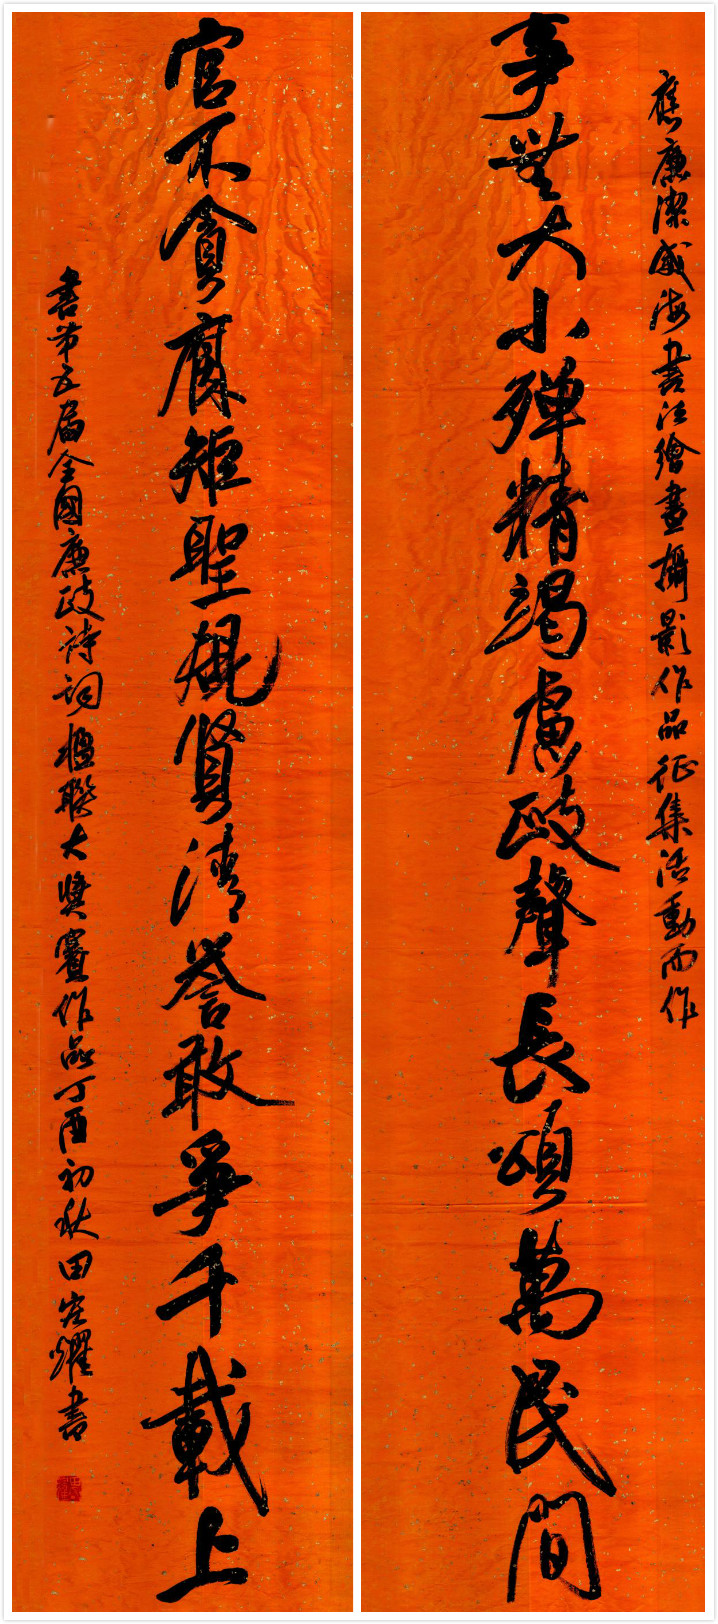 應廉潔威海書法繪畫攝影作品征集活動而作
事無大小殫精竭慮政聲長頌萬民間
官不貪腐矩聖規賢清譽敢爭千載上
書第五屆全國廉政詩詞楹聯大獎賽作品丁酉初秋田書